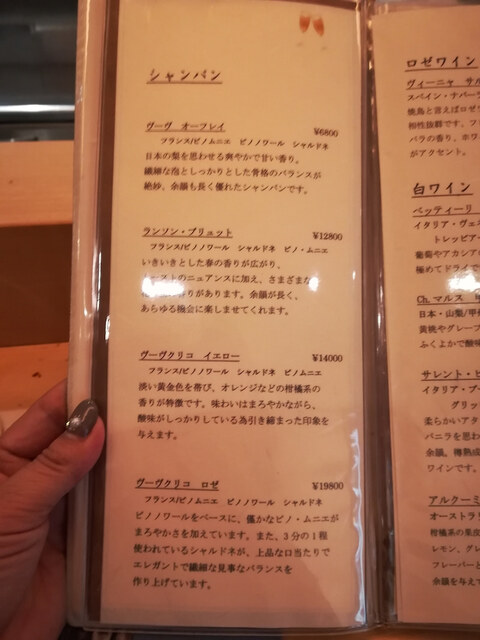 シャンパン
ヴーヴ オーフレイ ¥6800
フランス/ピノムニエ ピノノワール シャルドネ
日本の梨を思わせる爽やかで甘い香り。
繊細な泡としっかりとした骨格のバランスが
絶妙、余韻も長く優れたシャンパンです。
ランソン・ブリュット ¥12800
フランス/ピノノワール シャルドネ ピノ・ムニエ
いきいきとした春の香りが広がり、
ーストのニュアンスに加え、さまざまな
香りがあります。余韻が長く、
あらゆる機会に楽しませてくれます。
ヴーヴクリコ イエロー ¥14000
フランス/ピノノワール シャルドネ ピノムニエ
淡い黄金色を帯び、オレンジなどの柑橘系の
香りが特徴です。味わいはまろやかながら、
酸味がしっかりしている為引き締まった印象を
与えます。
ヴーヴクリコ ロゼ ¥19800
フランス/ピノムニエ ピノノワール シャルドネ
ピノノワールをベースに、僅かなピノ・ムニエが
まろやかさを加えています。また、3分の1程
使われているシャルドネが、上品な口当たりで
エレガントで繊細な見事なバランスを
作り上げています。
ロゼワイン
ヴィーニャ サル
スペイン・ナバーラ
焼鳥と言えばロゼ
相性抜群です。フ
バラの香り、ホワ
がアクセント。
白ワイン
ベッティーリ
イタリア・ヴェネ
トレッビア
葡萄やアカシア
極めてドライで
Ch.マルス 甲
日本・山梨/甲州
黄桃やグレープ
ふくよかで酸味
サレント・ビ
イタリア・プー
グリッ
柔らかいアタ
バニラを思わ
余韻、樽熟成
ワインです。
アルクーミ
オーストラリ
柑橘系の果皮
レモン、グレ
フレーバーと
余韻を与えて